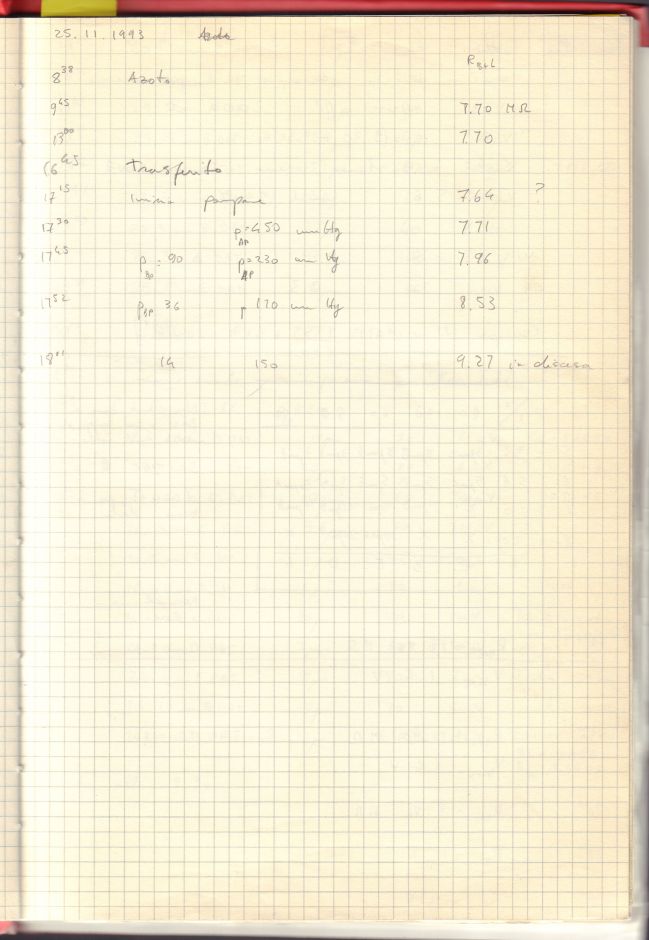 25.11.1993
R_B+L
8^38 Azoto
9^45 7.70 MΩ
13^00 7.70
16^45 Trasferito
17^15 inizio pompare 7.64 ?
17^30 p_AP=450 mm Hg 7.71
17^45 p_BP= 90 p_AP=230 mm Hg 7.96
17^52 p_BP 36 p 170 mm Hg 8.53
18^01 14 150 9.27 in discesa